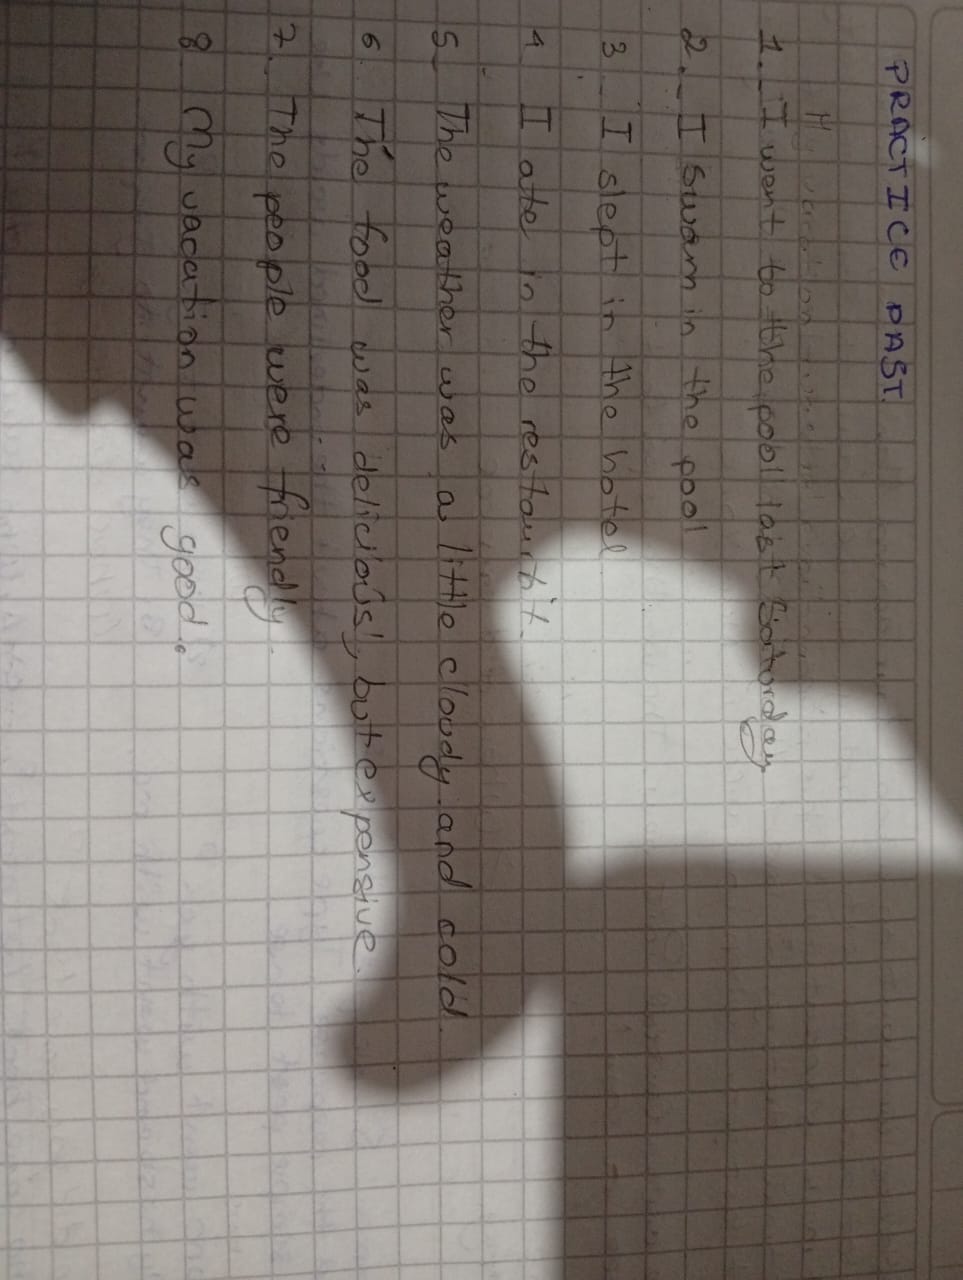 PRACTICE PAST.
1._ I went to the pool last Satorday
2._ I swam in the pool
3 _ I slept in the hotel
4 I ate in the restaurbt.
5- The weather was a little cloudy and cold.
6. The food was delicios, but expensive.
7._ The people were friendly.
8 My vacation was good.